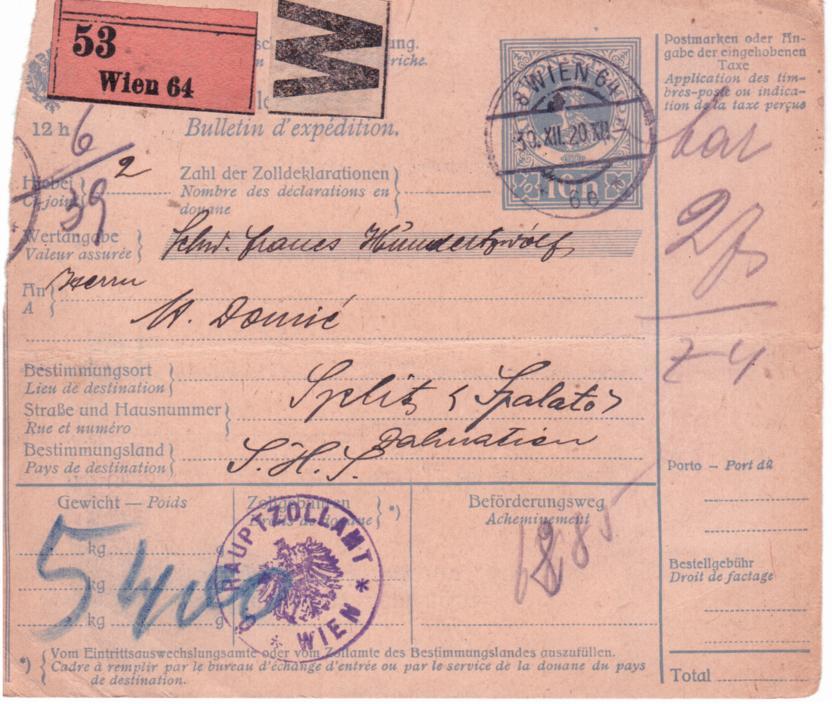 53
Wien 64
W
Postmarken oder An-
gabe der eingehobenen
Taxe
Application des tim-
bres-poste ou indica-
tion de la taxe perçue
8 WIEN 64
30.XII.20
Bulletin d'expédition.
12 h
6
39
bar
Hiebei
Ci-joint
2
Zahl der Zolldeklarationen
Nombre des déclarations en
douane
Wertangabe
Valeur assurée
Schw. francs Hundertzwölf
An
A
Herrn
M. Domić
Bestimmungsort
Lieu de destination
Split < Spalato >
Straße und Hausnummer
Rue et numéro
Dalmatien
Bestimmungsland
Pays de destination
S. H. S.
Porto — Port dû
Gewicht — Poids
Beförderungsweg
Acheminement
kg g
kg
kg g
5400
HAUPTZOLLAMT
* WIEN *
Bestellgebühr
Droit de factage
*) Vom Eintrittsauswechslungsamte oder vom Zollamte des Bestimmungslandes auszufüllen.
Cadre à remplir par le bureau d'échange d'entrée ou par le service de la douane du pays
de destination.
Total